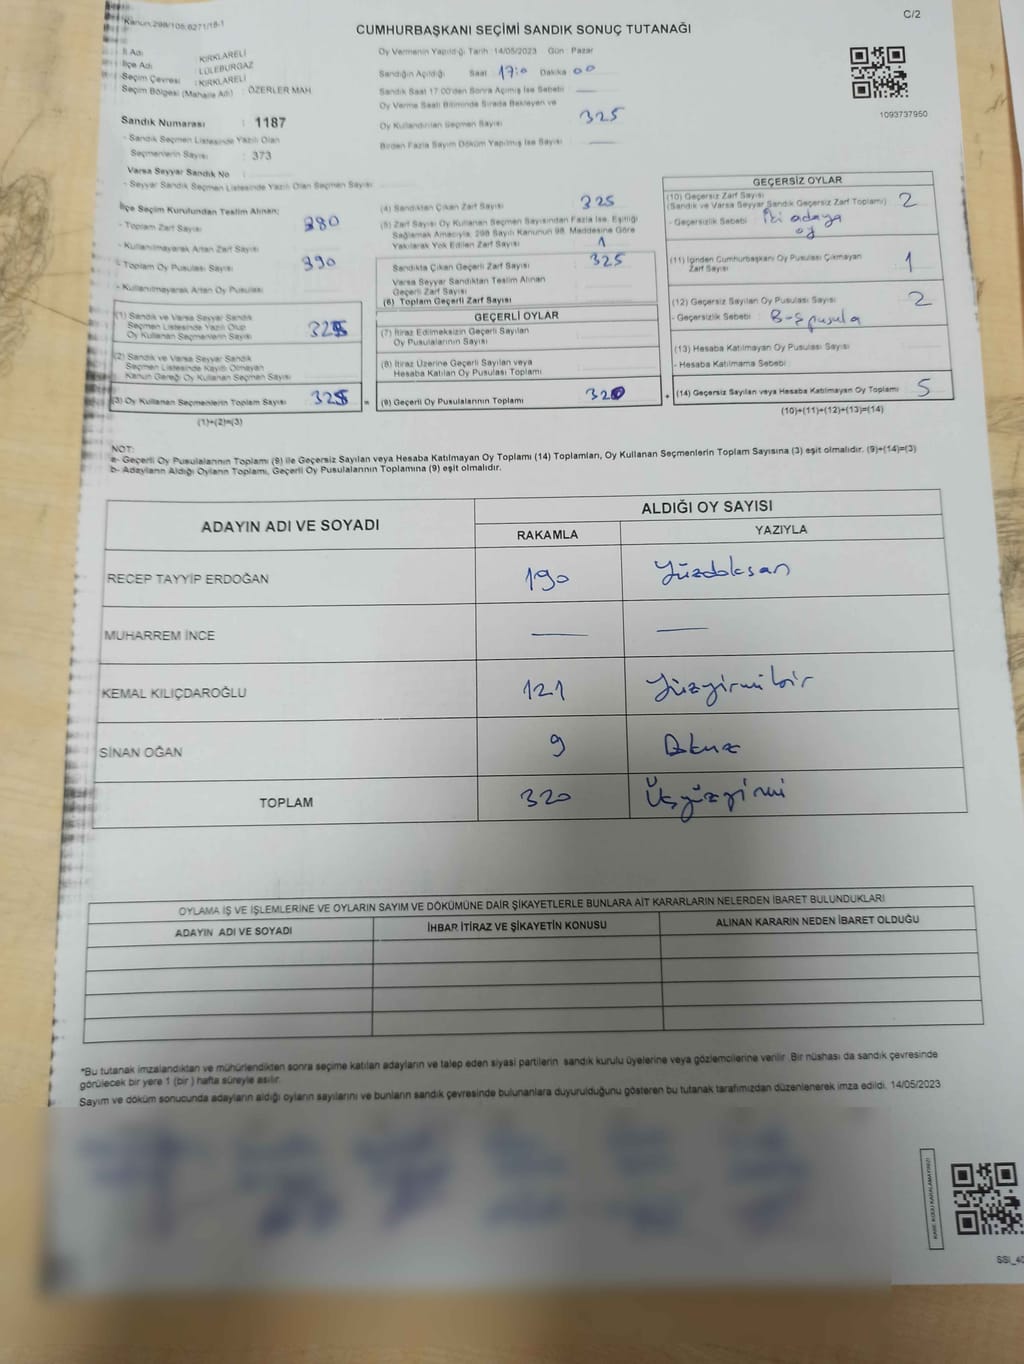 Kanun:298/105;6271/18-1
C/2
CUMHURBAŞKANI SEÇİMİ SANDIK SONUÇ TUTANAĞI
İl Adı : KIRKLARELİ
İlçe Adı : LÜLEBURGAZ
Seçim Çevresi : KIRKLARELİ
Seçim Bölgesi (Mahalle Adı) : ÖZERLER MAH
Sandık Numarası : 1187
- Sandık Seçmen Listesinde Yazılı Olan
Seçmenlerin Sayısı : 373
Varsa Seyyar Sandık No :
- Seyyar Sandık Seçmen Listesinde Yazılı Olan Seçmen Sayısı
Oy Vermenin Yapıldığı Tarih :14/05/2023 Gün : Pazar
Sandığın Açıldığı Saat 17:0 Dakika 00
Sandık Saat 17.00'den Sonra Açılmış İse Sebebi
Oy Verme Saati Bitiminde Sırada Bekleyen ve
Oy Kullandırılan Seçmen Sayısı 325
Birden Fazla Sayım Döküm Yapılmış İse Sayısı
1093737950
İlçe Seçim Kurulundan Teslim Alınan;
- Toplam Zarf Sayısı 380
- Kullanılmayarak Artan Zarf Sayısı
- Toplam Oy Pusulası Sayısı 390
- Kullanılmayarak Artan Oy Pusulası
(1) Sandık ve Varsa Seyyar Sandık
Seçmen Listesinde Yazılı Olup
Oy Kullanan Seçmenlerin Sayısı 325
(2) Sandık ve Varsa Seyyar Sandık
Seçmen Listesinde Kayıtlı Olmayan
Kanun Gereği Oy Kullanan Seçmen Sayısı
(3) Oy Kullanan Seçmenlerin Toplam Sayısı 325 =
(1)+(2)=(3)
(4) Sandıktan Çıkan Zarf Sayısı 325
(5) Zarf Sayısı Oy Kullanan Seçmen Sayısından Fazla İse, Eşitliği
Sağlamak Amacıyla, 298 Sayılı Kanunun 98. Maddesine Göre
Yakılarak Yok Edilen Zarf Sayısı 1
Sandıkta Çıkan Geçerli Zarf Sayısı 325
Varsa Seyyar Sandıktan Teslim Alınan
Geçerli Zarf Sayısı
(6) Toplam Geçerli Zarf Sayısı
GEÇERLİ OYLAR
(7) İtiraz Edilmeksizin Geçerli Sayılan
Oy Pusulasının Sayısı
(8) İtiraz Üzerine Geçerli Sayılan veya
Hesaba Katılan Oy Pusulası Toplamı
(9) Geçerli Oy Pusulalarının Toplamı 320 +
GEÇERSİZ OYLAR
(10) Geçersiz Zarf Sayısı
(Sandık ve Varsa Seyyar Sandık Geçersiz Zarf Toplamı) 2
- Geçersizlik Sebebi : İki adaya
oy
(11) İçinden Cumhurbaşkanı Oy Pusulası Çıkmayan
Zarf Sayısı 1
(12) Geçersiz Sayılan Oy Pusulası Sayısı 2
- Geçersizlik Sebebi : Boş pusula
(13) Hesaba Katılmayan Oy Pusulası Sayısı
- Hesaba Katılmama Sebebi :
(14) Geçersiz Sayılan veya Hesaba Katılmayan Oy Toplamı 5
(10)+(11)+(12)+(13)=(14)
NOT:
a- Geçerli Oy Pusulalarının Toplamı (9) ile Geçersiz Sayılan veya Hesaba Katılmayan Oy Toplamı (14) Toplamları, Oy Kullanan Seçmenlerin Toplam Sayısına (3) eşit olmalıdır. (9)+(14)=(3)
b- Adayların Aldığı Oyların Toplamı, Geçerli Oy Pusulalarının Toplamına (9) eşit olmalıdır.
ADAYIN ADI VE SOYADI
ALDIĞI OY SAYISI
RAKAMLA YAZIYLA
RECEP TAYYİP ERDOĞAN 190 Yüzdoksan
MUHARREM İNCE — —
KEMAL KILIÇDAROĞLU 121 Yüzyirmibir
SİNAN OĞAN 9 Dokuz
TOPLAM 320 Üçyüzyirmi
OYLAMA İŞ VE İŞLEMLERİNE VE OYLARIN SAYIM VE DÖKÜMÜNE DAİR ŞİKAYETLERLE BUNLARA AİT KARARLARIN NELERDEN İBARET BULUNDUKLARI
ADAYIN ADI VE SOYADI İHBAR, İTİRAZ VE ŞİKAYETİN KONUSU ALINAN KARARIN NEDEN İBARET OLDUĞU
*Bu tutanak imzalandıktan ve mühürlendikten sonra seçime katılan adayların ve talep eden siyasi partilerin sandık kurulu üyelerine veya gözlemcilerine verilir. Bir nüshası da sandık çevresinde
görülecek bir yere 1 (bir ) hafta süreyle asılır.
Sayım ve döküm sonucunda adayların aldığı oyların sayılarını ve bunların sandık çevresinde bulunanlara duyurulduğunu gösteren bu tutanak tarafımızdan düzenlenerek imza edildi. 14/05/2023
KARE KODU KARALAMAYINIZ!
SSI_40